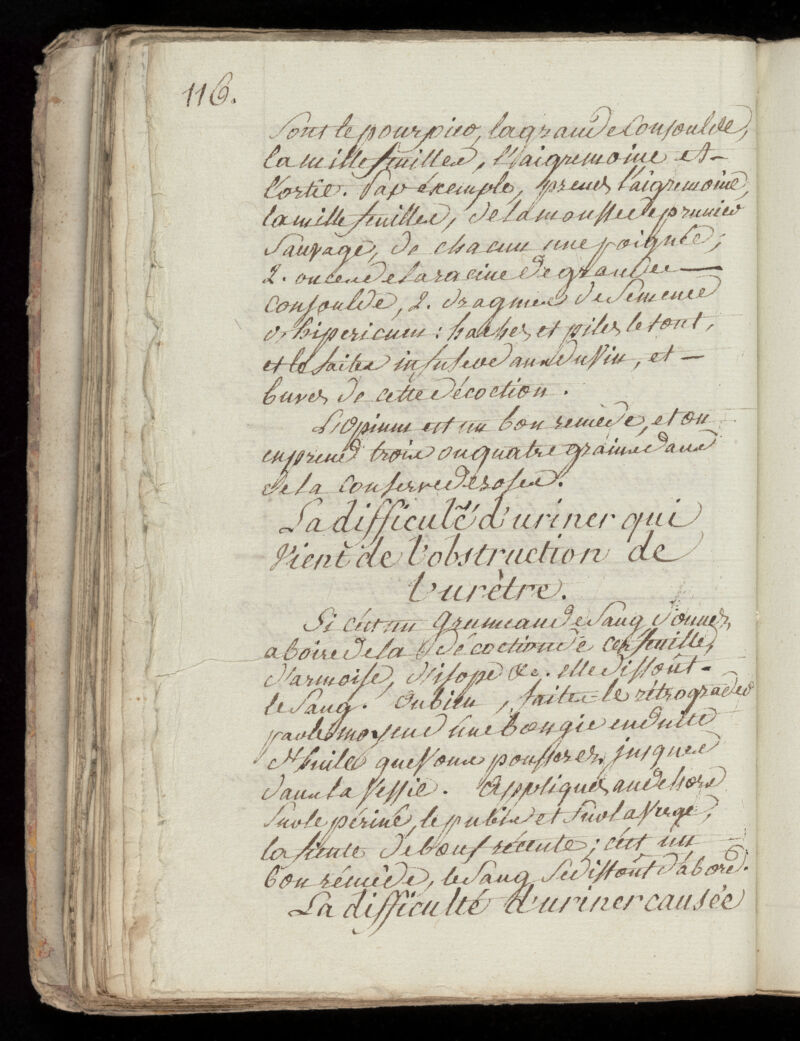 116.
sont le pourpier, la grande Consoulde,
la mille feuilles, l'aigremoine et
l'ortie. Par éxemple, prenes l'aigremoine,
la mille feuilles, de la mousse de prunier
Sauvage, de chacun une poignée;
2. onces de la racine de grande
consoulde, 2. dragmes de Semence
d'hipericum: haches et piles le tout,
et le faites infuser dans du Vin, et
buves de cette décoction.
L'opium est un bon remède, et on
en prend trois ou quatre grains dans
de la conserve de roses.
La difficulté d'uriner qui
Vient de l'obstruction de
l'urètre.
Si c'est un grumeau de Sang donnes
a boire de la décoction de cerfeuille,
d'armoise, d'isope &c. elle dissout
le Sang. ou bien, faites le rétrograder
par le moyen d'une bougie enduite
d'huile que Vous pousseres jusques
dans la Vessie. Appliques au dehors
Sur le périné, le pubis et Sur la Verge,
la fiente de bœuf récente; c'est un
bon rémède, le Sang Se dissout d'abord.
La difficulté d'uriner causée